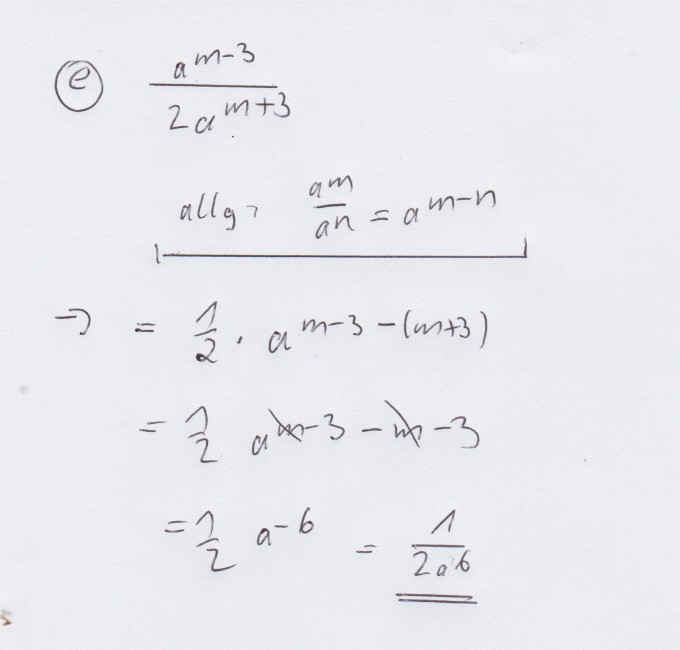 e a^(m-3) / 2a^(m+3)
allg. a^m / a^n = a^(m-n)
→ = 1/2 · a^(m-3-(m+3))
= 1/2 a^(m-3-m-3)
= 1/2 a^(-6) = 1 / 2a^6